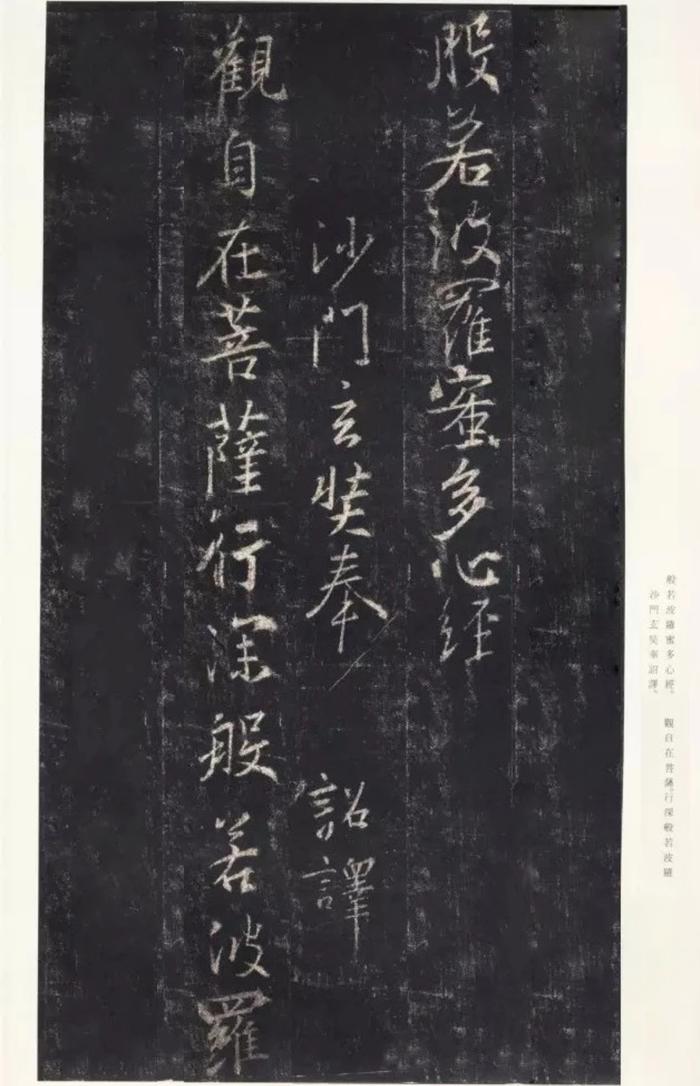 般若波羅蜜多心経
沙門玄奘奉 詔譯
觀自在菩薩行深般若波羅
般若波羅蜜多心經。 觀自在菩薩。行深般若波羅
沙門玄奘奉詔譯。